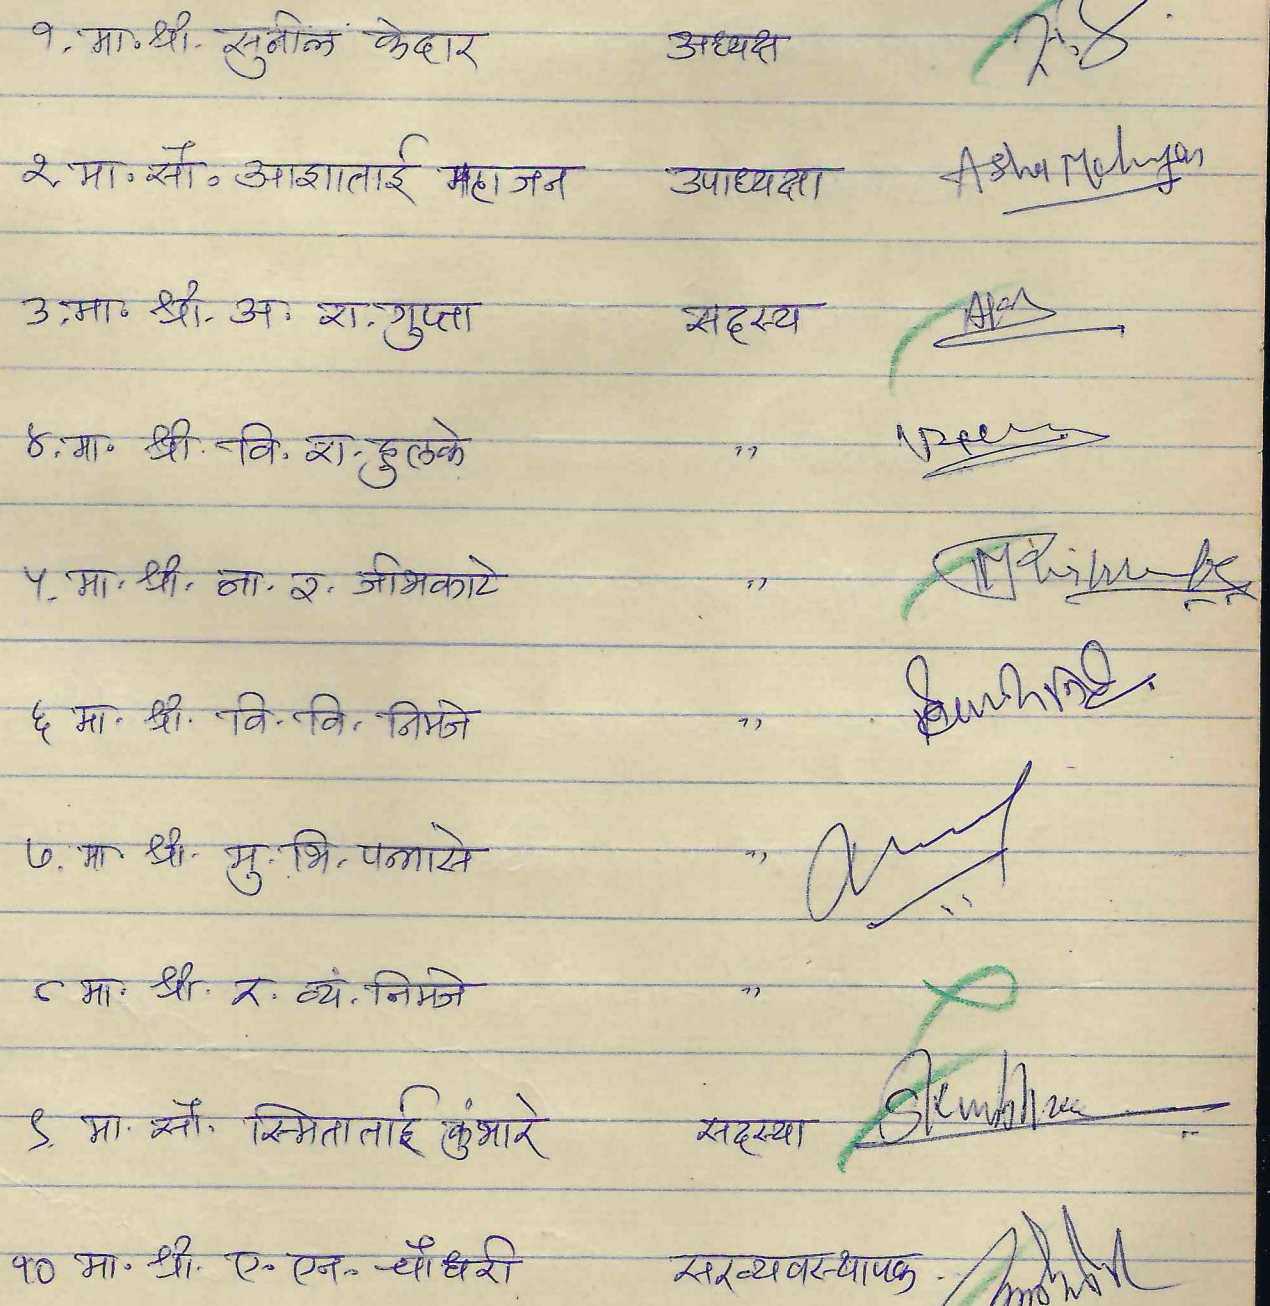 १. मा. श्री. सुनील केदार अध्यक्ष
२. मा. सौ. आशाताई महाजन उपाध्यक्षा Asha Mahajan
३. मा. श्री. अ. रा. गुप्ता सदस्य
४. मा. श्री. वि. रा. हुलके ,,
५. मा. श्री. ना. र. जीभकाटे ,,
६ मा. श्री. वि. वि. निमजे ,,
७. मा श्री. मु. भि. पन्नासे ,,
८ मा. श्री. र. व्यं. निमजे ,,
९. मा. सौ. स्मिताताई कुंभारे सदस्या
१० मा. श्री. ए. एन. चौधरी सरव्यवस्थापक